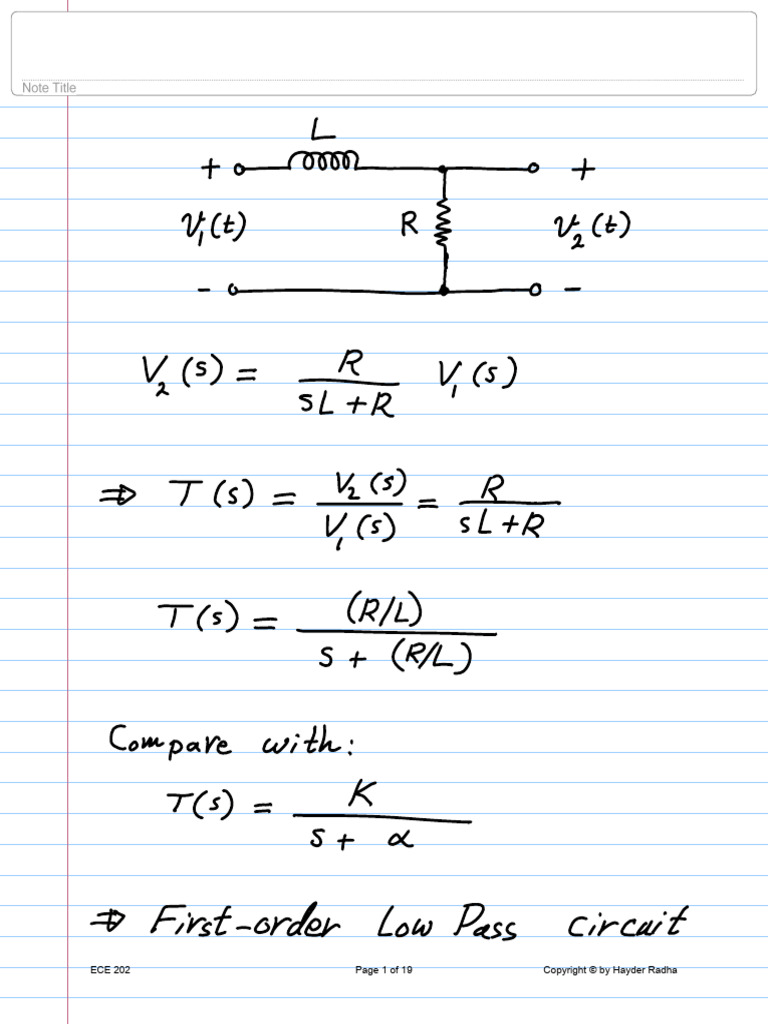 Note Title
L
+ +
V₁(t) R V₂(t)
- -
V₂(s) = R / (sL + R) V₁(s)
⇒ T(s) = V₂(s) / V₁(s) = R / (sL + R)
T(s) = (R/L) / (s + (R/L))
Compare with:
T(s) = K / (s + α)
⇒ First-order Low Pass circuit
ECE 202 Page 1 of 19 Copyright © by Hayder Radha